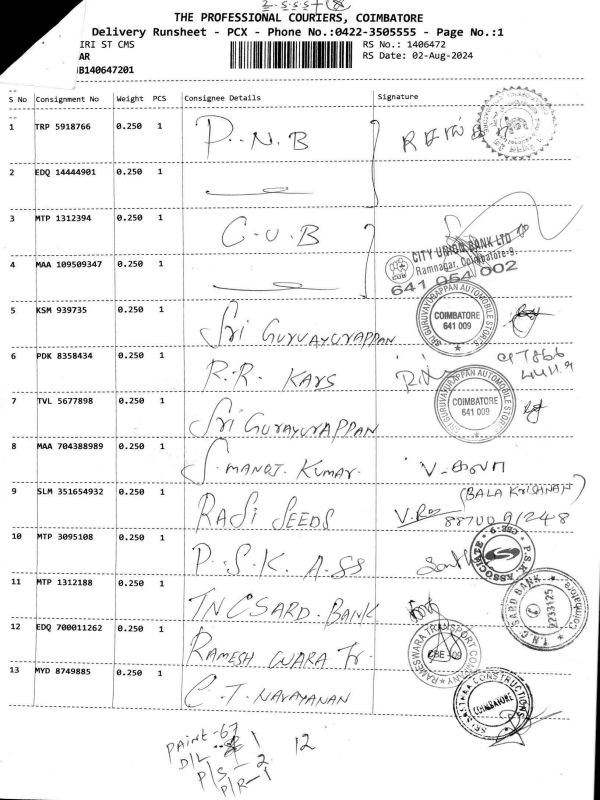 THE PROFESSIONAL COURIERS, COIMBATORE
Delivery Runsheet - PCX - Phone No.:0422-3505555 - Page No.:1
IRI ST CMS
RS No.: 1406472
AR
RS Date: 02-Aug-2024
B140647201
S No Consignment No Weight PCS Consignee Details Signature
1 TRP 5918766 0.250 1 P.N.B
2 EDQ 14444901 0.250 1
3 MTP 1312394 0.250 1 C.U.B
CITY UNION BANK LTD
Ramnagar, Coimbatore-9.
CUB
641 054 002
4 MAA 109509347 0.250 1
5 KSM 939735 0.250 1 Sri GURUVAYURAPPAN
SRI GURUVAYURAPPAN AUTOMOBILE STORES
COIMBATORE
641 009
6 PDK 8358434 0.250 1 R.R. KAYS
7 TVL 5677898 0.250 1 Sri GURAYURAPPAN
SRI GURUVAYURAPPAN AUTOMOBILE STORES
COIMBATORE
641 009
8 MAA 704388989 0.250 1 S. MANOJ. KUMAR.
(BALA KRISHNAN)
9 SLM 351654932 0.250 1 RASI SEEDS
10 MTP 3095108 0.250 1 P.S.K. ASS
P.S.K. ASSOCIATE CBE-9
11 MTP 1312188 0.250 1 TNCSARD. BANK
T.N.C. SARD BANK Coimbatore
2233125
12 EDQ 700011262 0.250 1 RAMESH WARA Tr.
RAMESWARA TRANSPORT COMPANY
CBE-09
13 MYD 8749885 0.250 1 C.T. NARAYANAN
SRI SASTHAA CONSTRUCTIONS
COIMBATORE
PAINT-67
D/L - 1
12
P/S - 2
P/R - 1